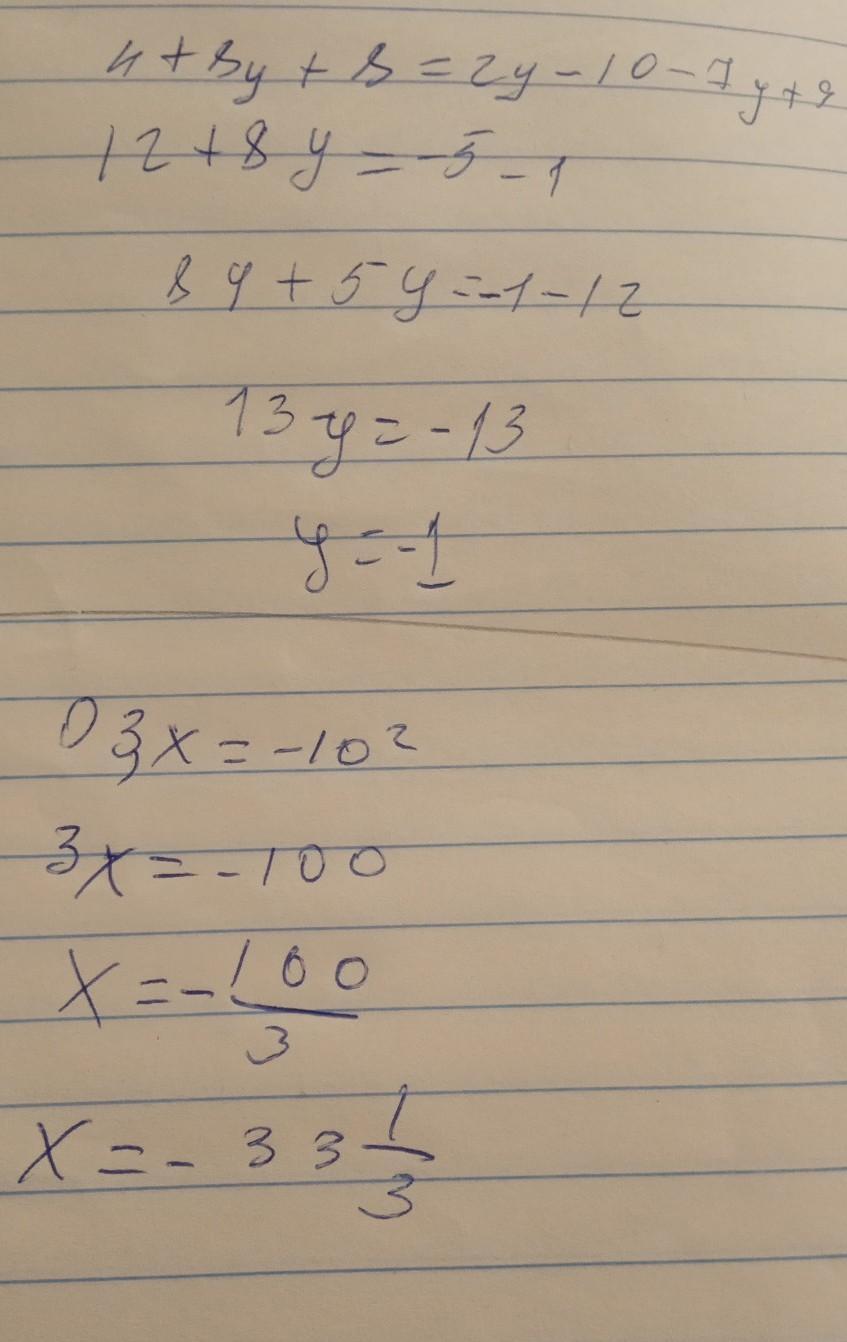 4+8y+8=2y-10-7y+9
12+8y=-5-1
8y+5y=-1-12
13y=-13
y=-1
0,3x=-10²
3x=-100
x=-100/3
x=-33 1/3